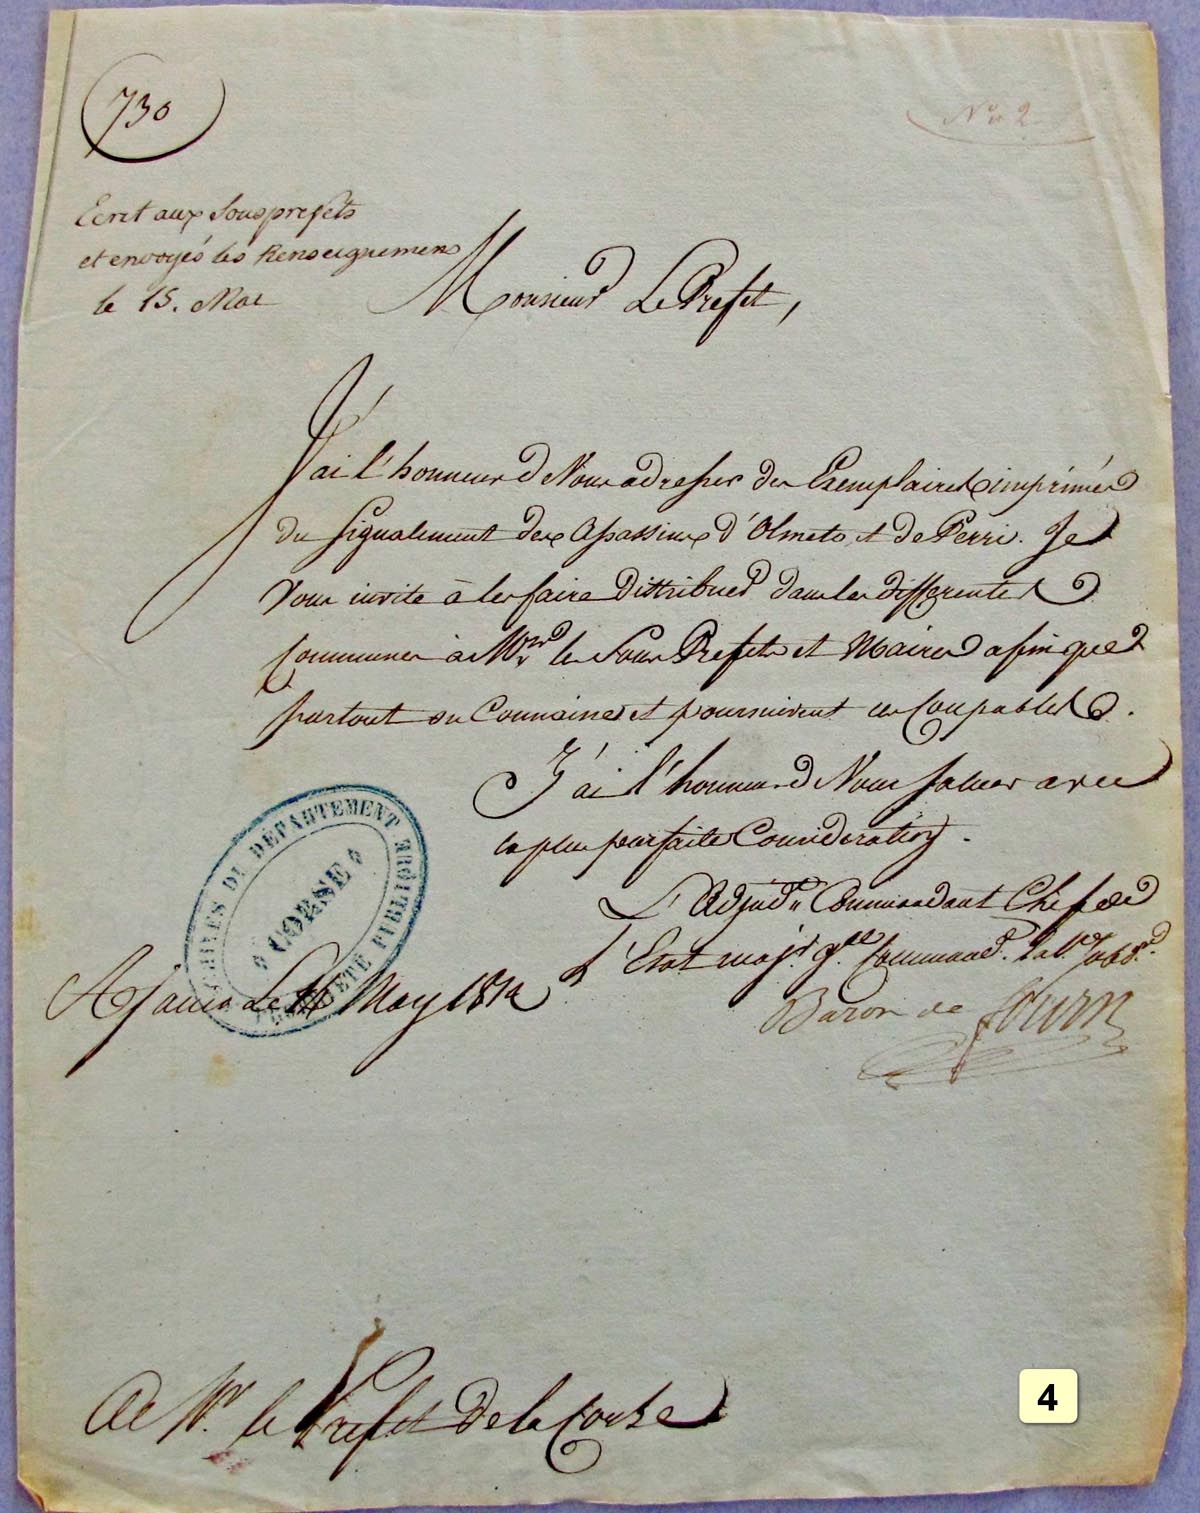 730
N° 2
Ecrit aux Sousprefets
et envoyés les Renseignemens
le 15. Mai
Monsieur Le Prefet,
J'ai l'honneur de Vous adresser des Exemplaires imprimés
du signalement des assassins d'Olmeto et de Perri. Je
Vous invite à les faire distribuer dans les differentes
Communes à M.rs les Sous Prefets et Maires afin que
partout on Connaisse et poursuivent ces Coupables.
J'ai l'honneur de Vous saluer avec
la plus parfaite Consideration.
L'Adjud.t Commandant Chef de
l'Etat maj.r g.al Command.t la
Baron de
Ajaccio Le May 1812
ARCHIVES DU DÉPARTEMENT
CORSE
PROPRIÉTÉ PUBLIQUE
A M.r le Prefet de la Corse
4